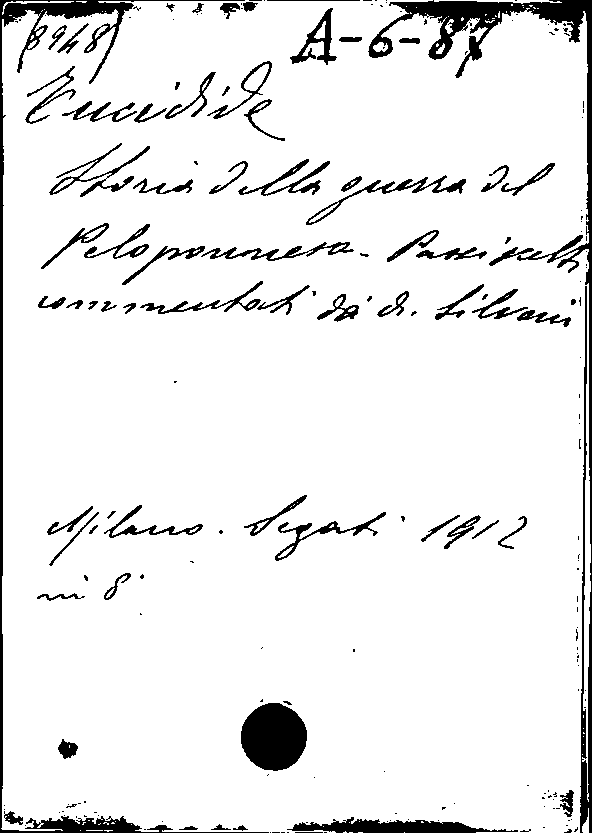 (8948) A-6-87
Tucidide
Storia della guerra del
Peloponneso - Passi scelti
commentati da d. Silvani
Milano. Segati 1912
in 8°